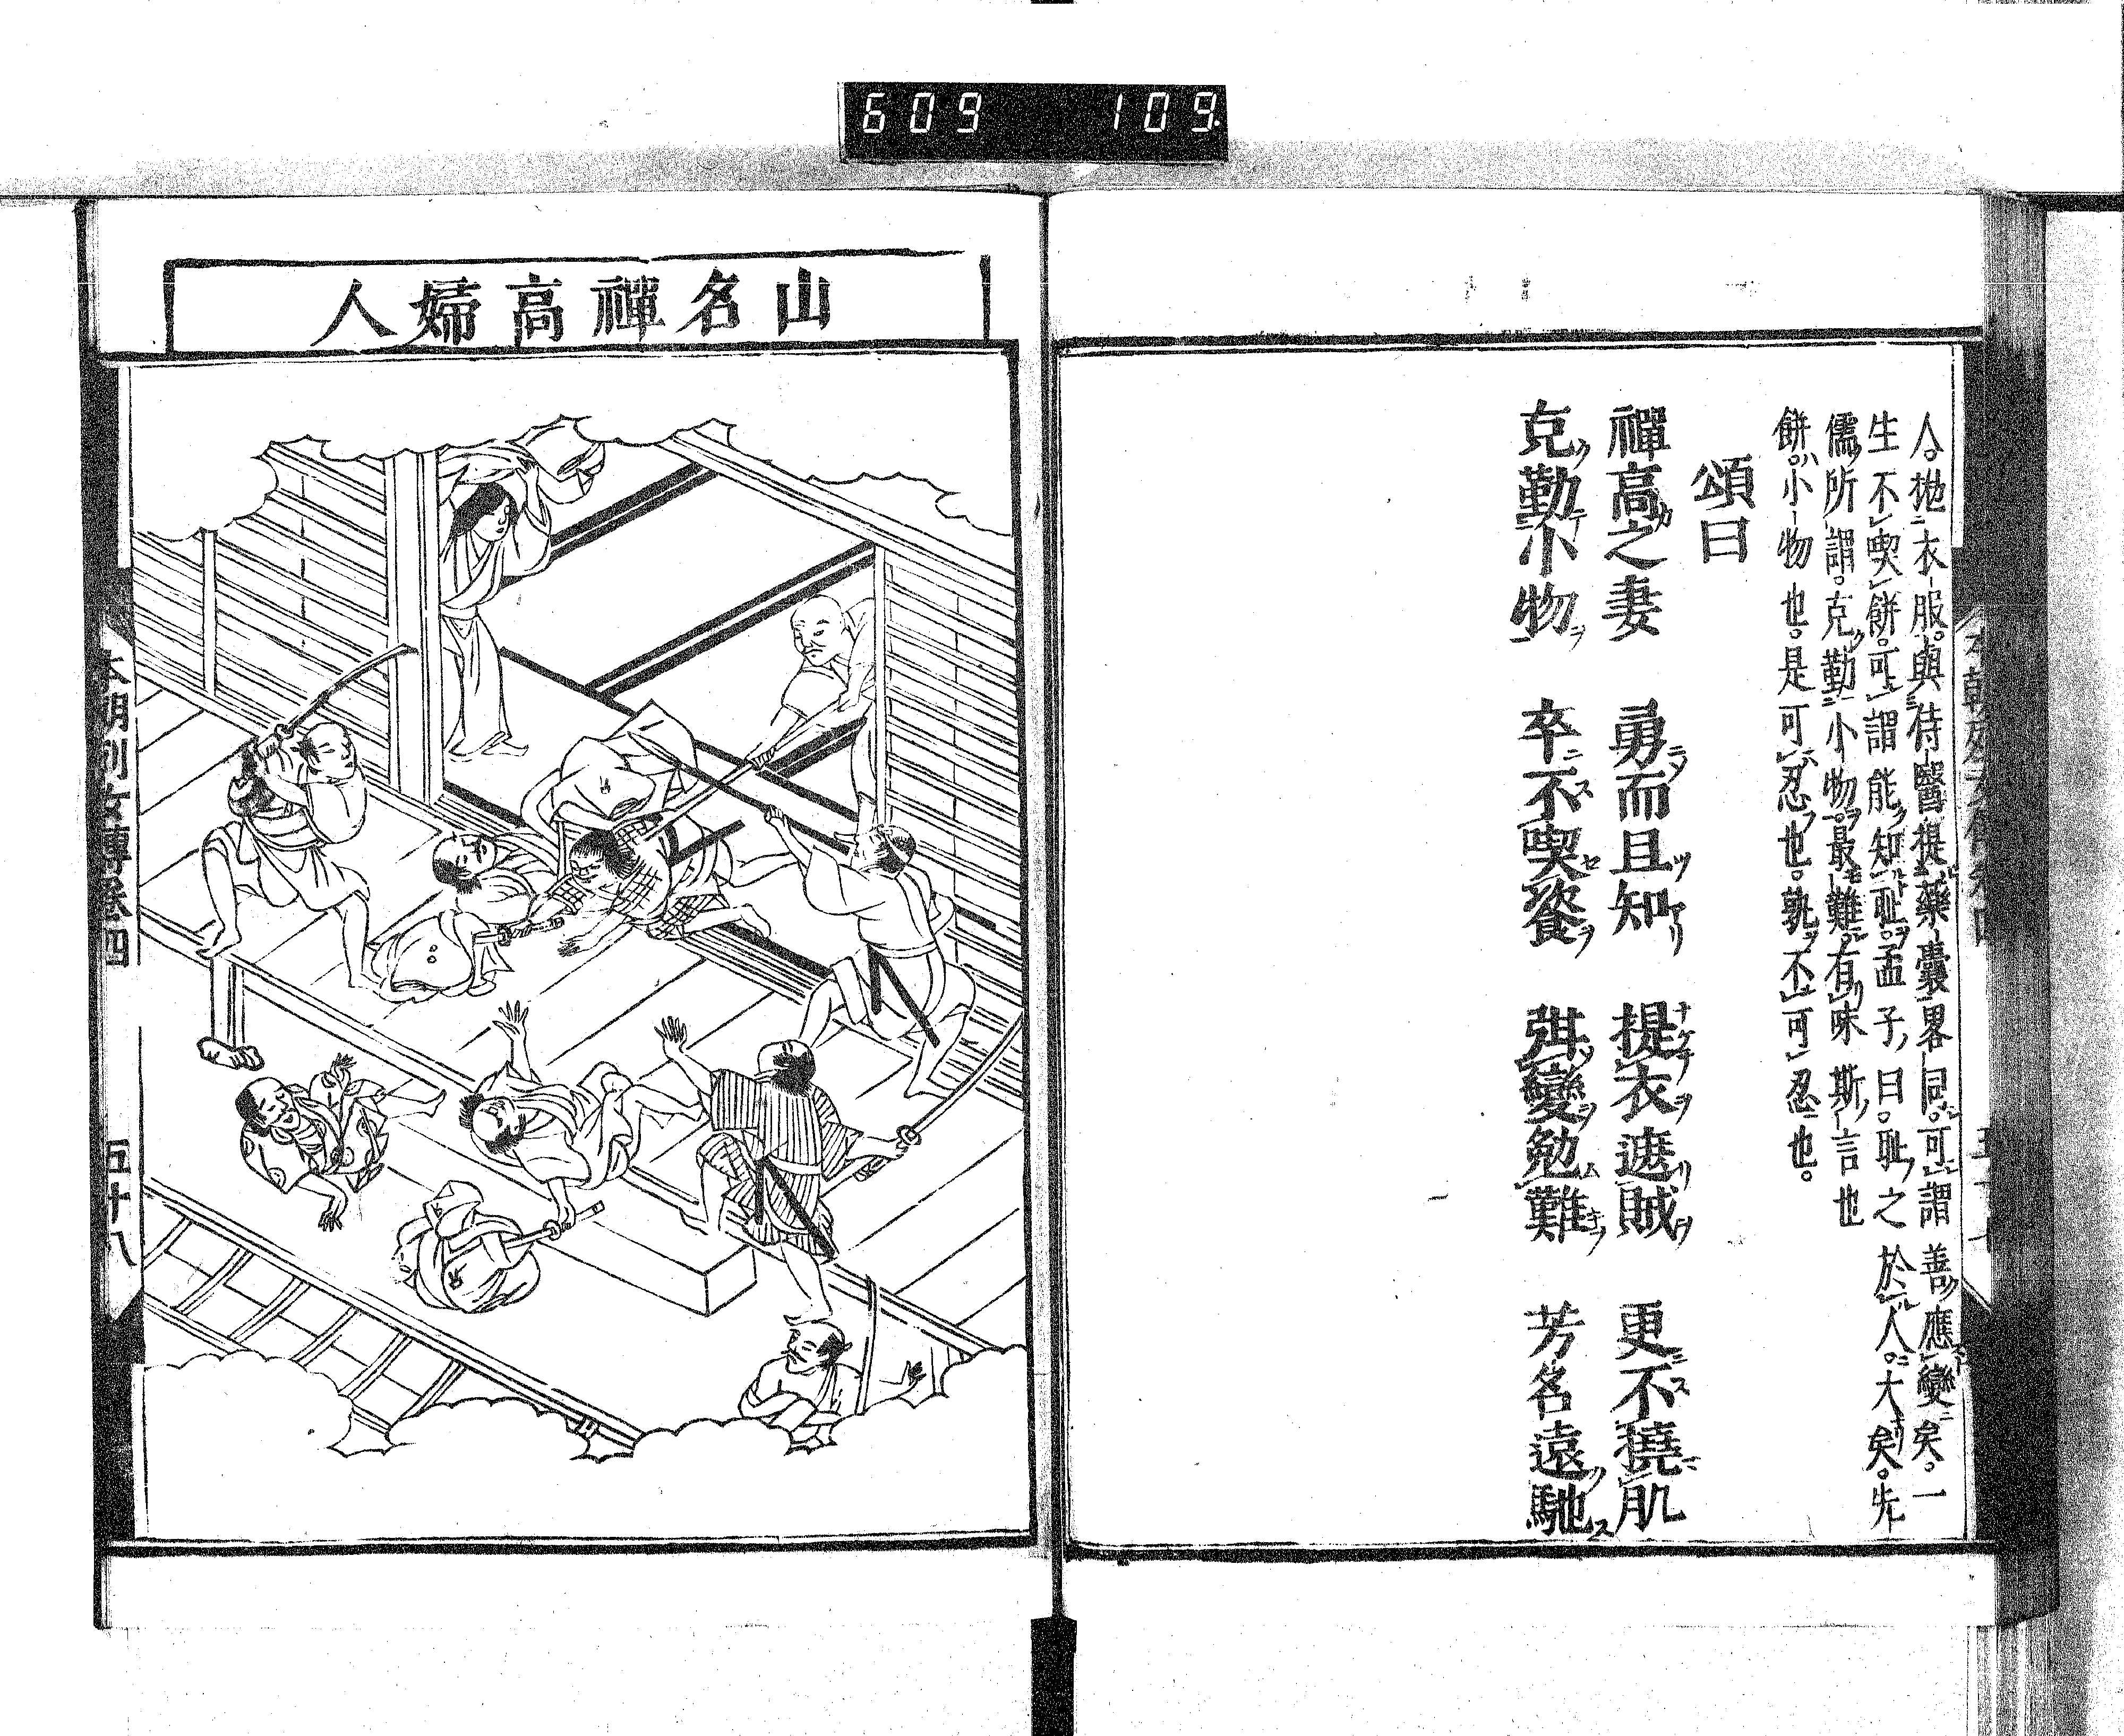 609 109.
人。拋衣服。與侍醫提藥囊畧同。可謂善應變矣。一
生不喫餅。可謂能知耻。孟子曰。耻之於人。大矣。先
儒所謂。克勤小物。最難。有味斯言也
餅。小物也。是可忍也。孰不可忍也。
頌曰
禪高之妻 勇而且知 提衣遮賊 更不撓肌
克勤小物 卒不喫餈 弭變勉難 芳名遠馳
山名禪高婦人
本朝列女傳卷四 五十八